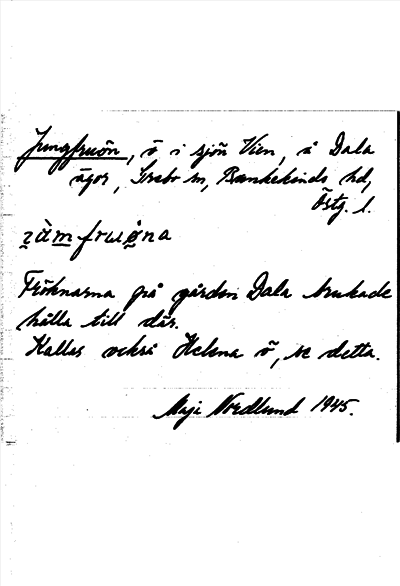 Jungfruön, ö i sjön Vien, å Dala
ägor, Grebo sn, Bankekinds hd,
Östg. l.
Fröknarna på gården Dala brukade
hålla till där.
Kallas också Helena ö, se detta.
Maji Nordlund 1945.